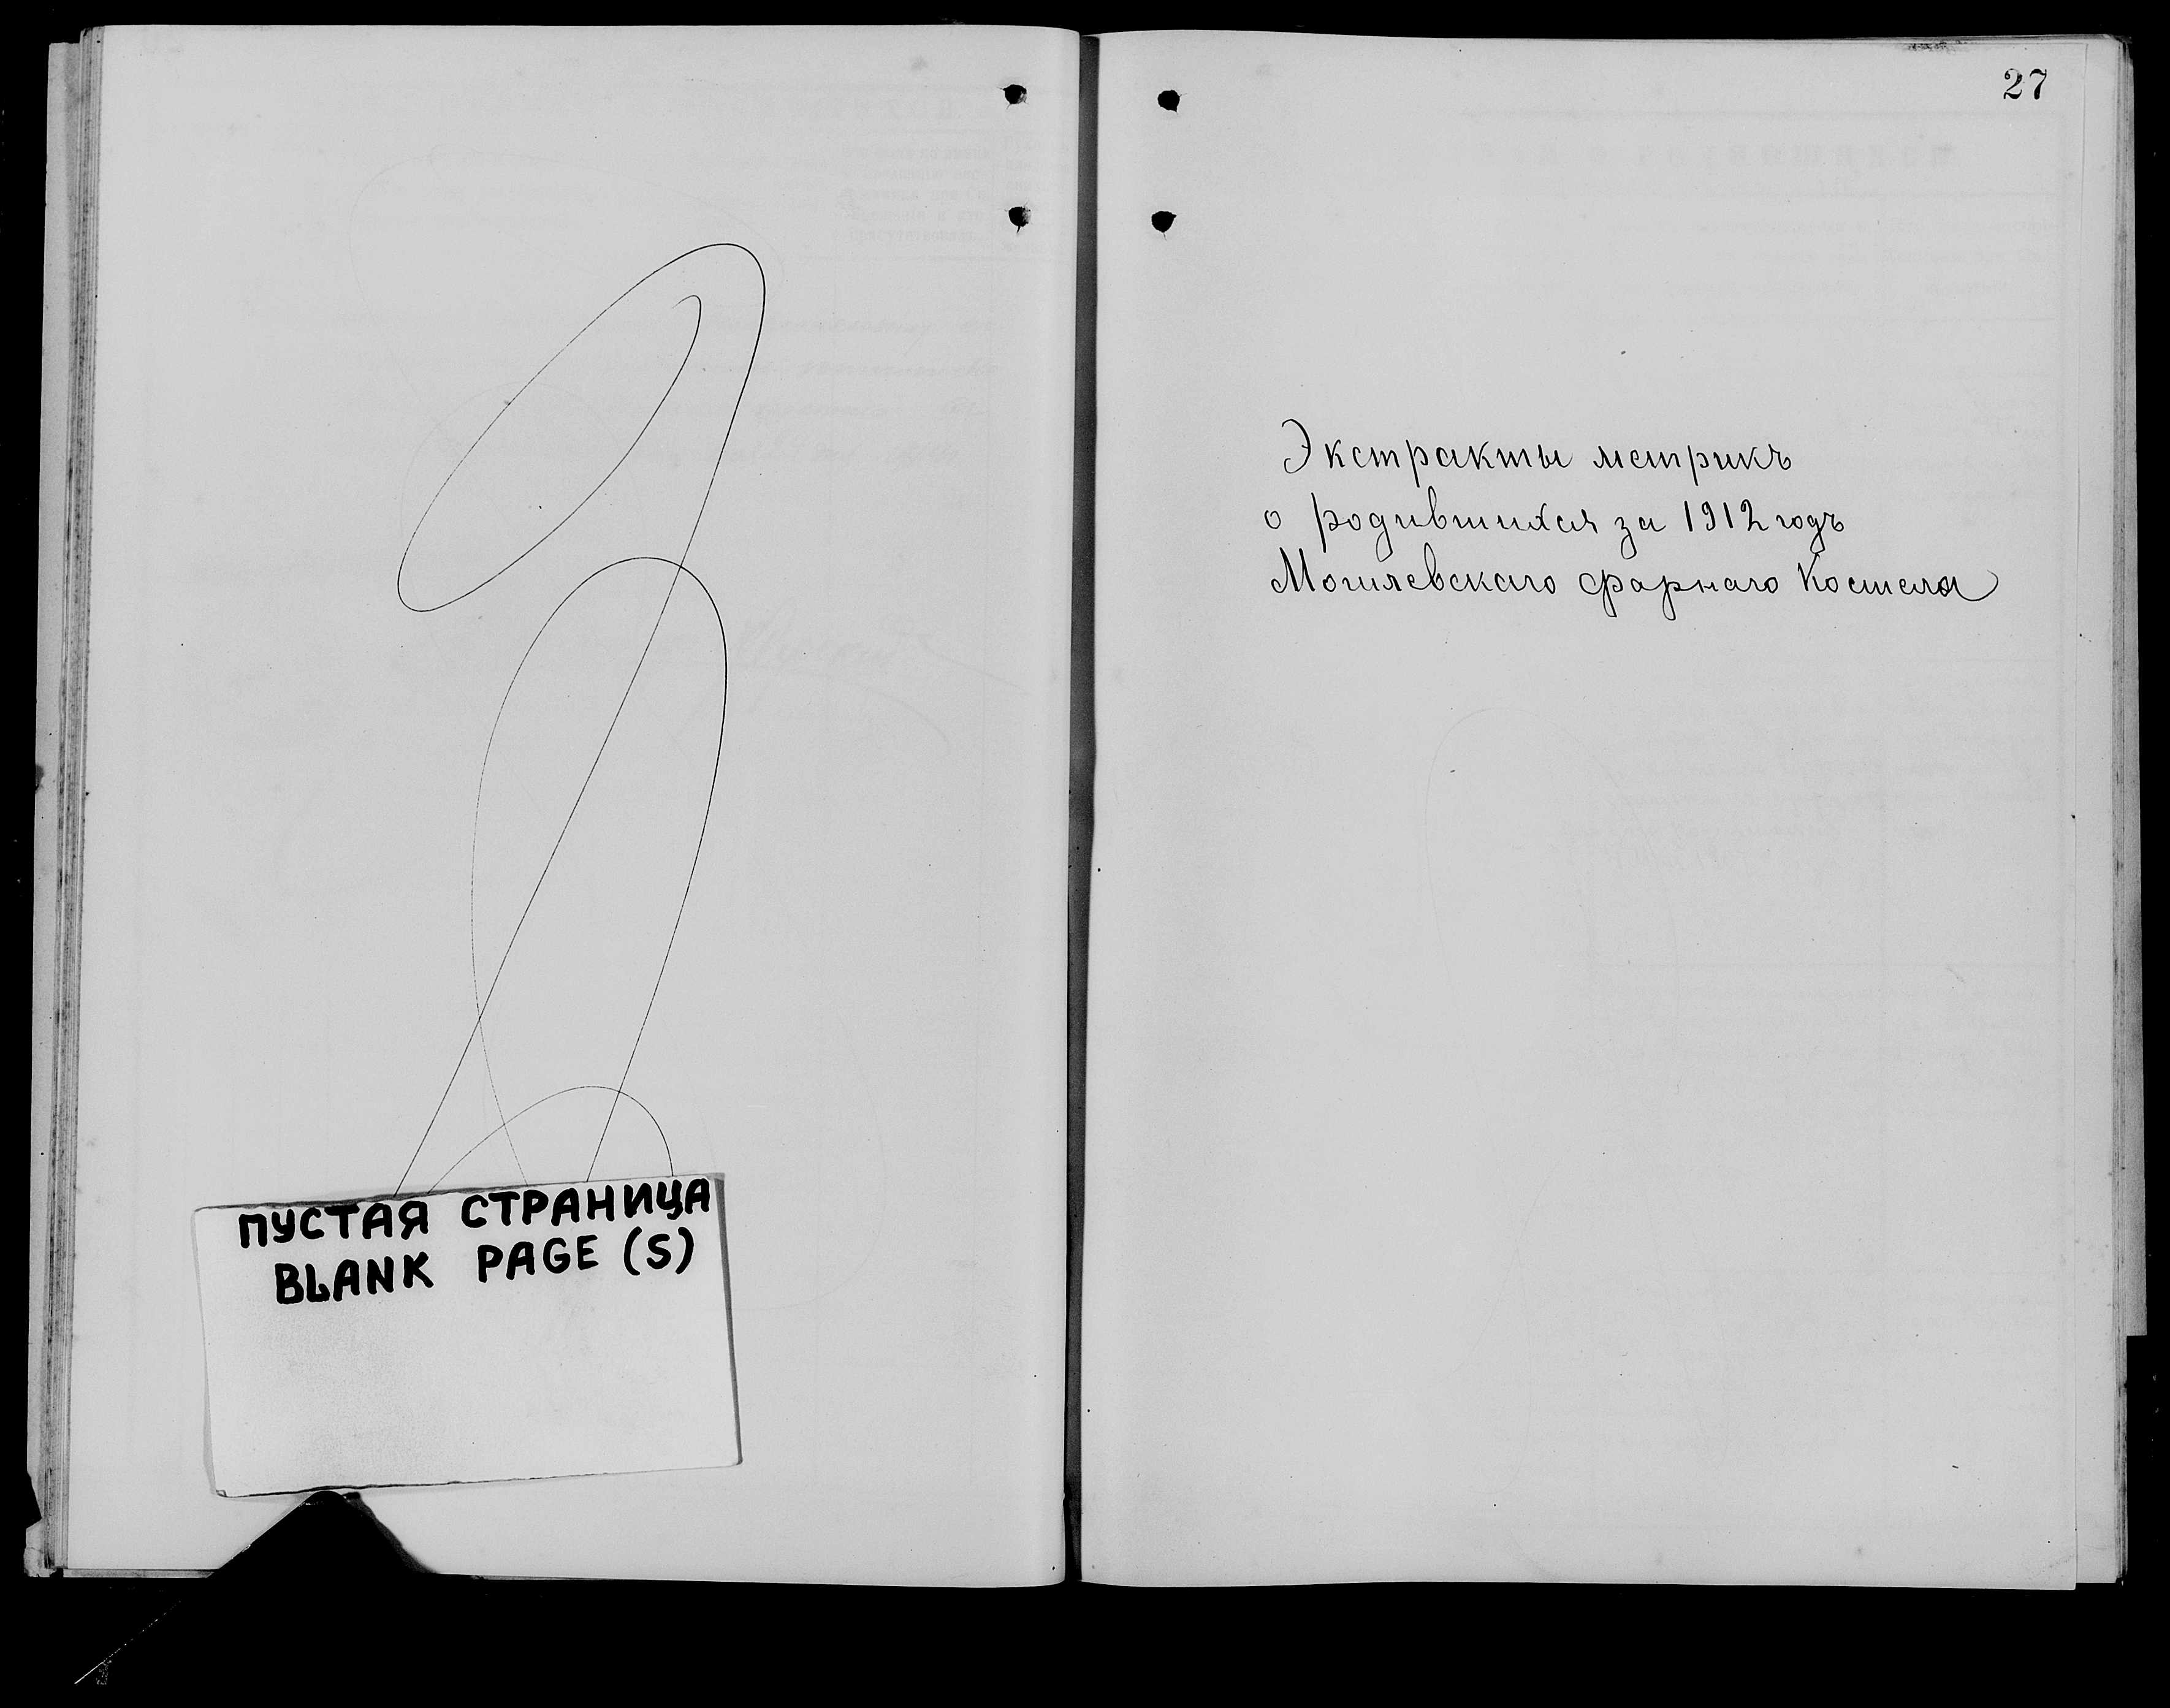 ПУСТАЯ СТРАНИЦА
BLANK PAGE (S)
27
Экстракты метрикъ
о родившихся за 1912 годъ
Могилевскаго фарнаго Костела